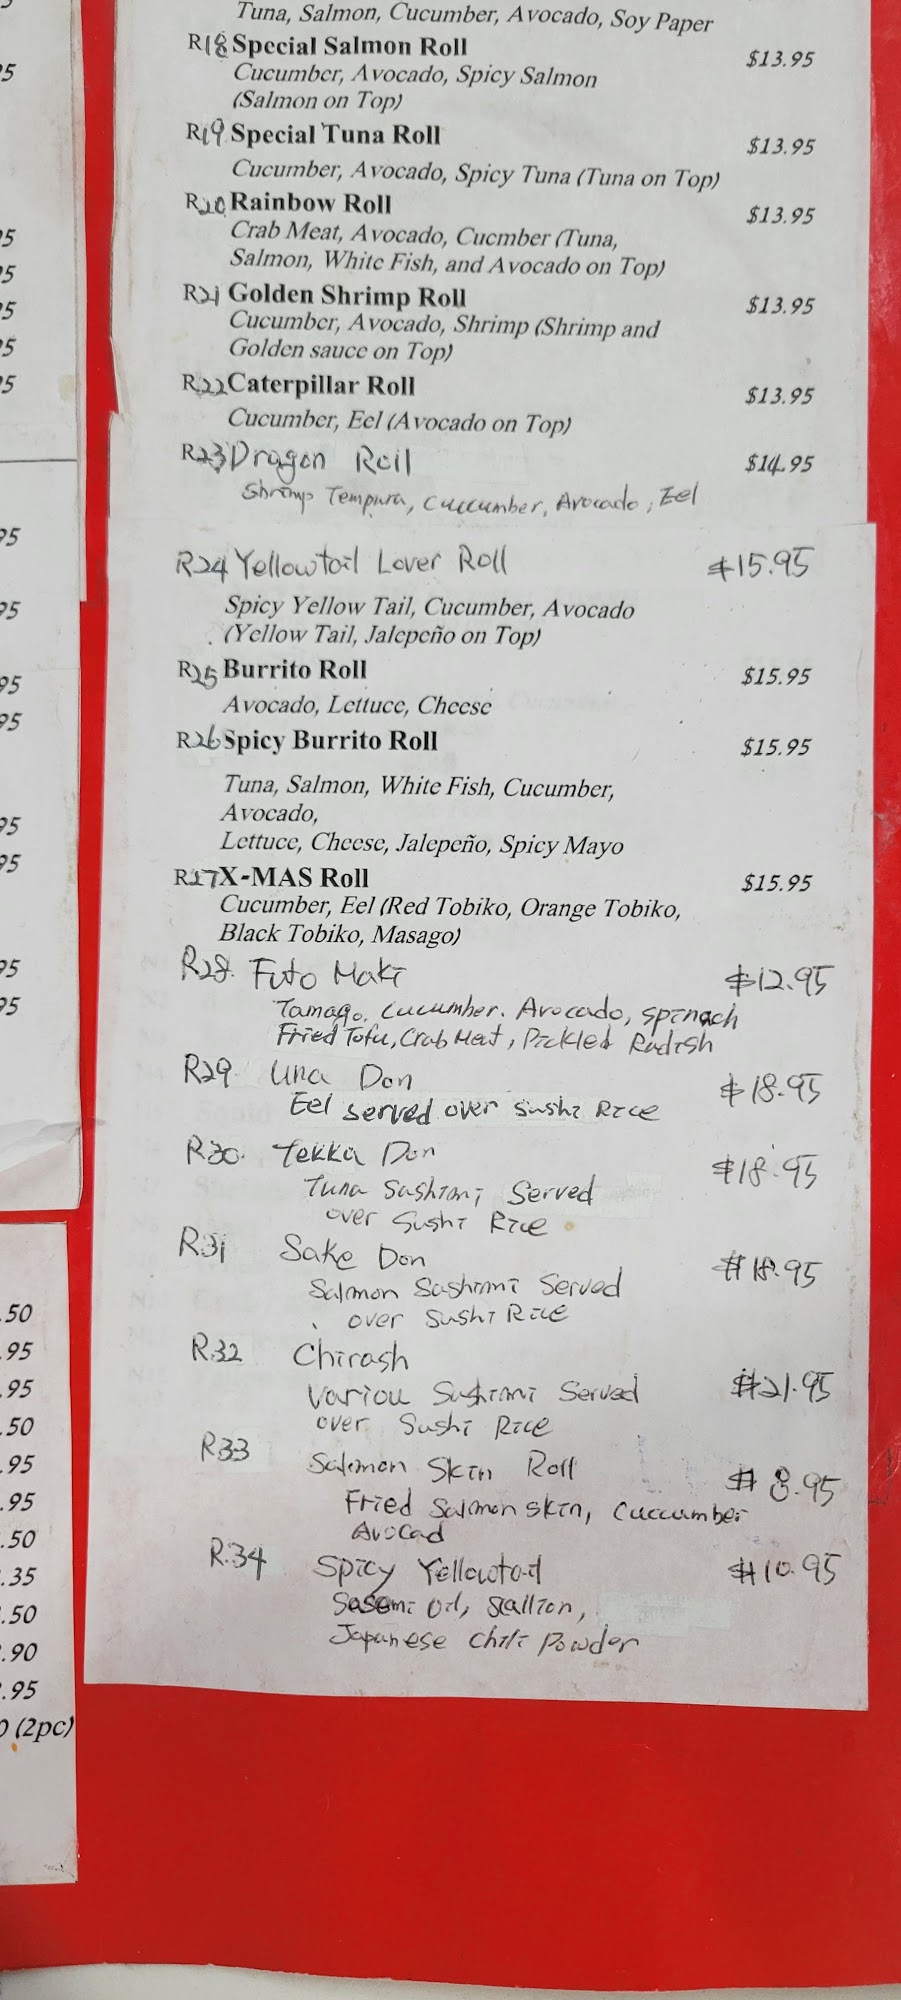 Tuna, Salmon, Cucumber, Avocado, Soy Paper
R18 Special Salmon Roll $13.95
Cucumber, Avocado, Spicy Salmon
(Salmon on Top)
R19 Special Tuna Roll $13.95
Cucumber, Avocado, Spicy Tuna (Tuna on Top)
R20 Rainbow Roll $13.95
Crab Meat, Avocado, Cucmber (Tuna,
Salmon, White Fish, and Avocado on Top)
R21 Golden Shrimp Roll $13.95
Cucumber, Avocado, Shrimp (Shrimp and
Golden sauce on Top)
R22 Caterpillar Roll $13.95
Cucumber, Eel (Avocado on Top)
R23 Dragon Roll $14.95
Shrimp Tempura, Cuccumber, Avocado, Eel
R24 Yellowtail Lover Roll $15.95
Spicy Yellow Tail, Cucumber, Avocado
(Yellow Tail, Jalepeño on Top)
R25 Burrito Roll $15.95
Avocado, Lettuce, Cheese
R26 Spicy Burrito Roll $15.95
Tuna, Salmon, White Fish, Cucumber,
Avocado,
Lettuce, Cheese, Jalepeño, Spicy Mayo
R27 X-MAS Roll $15.95
Cucumber, Eel (Red Tobiko, Orange Tobiko,
Black Tobiko, Masago)
R28. Futo Maki $12.95
Tamago, Cucumber. Avocado, spinach
Fried Tofu, Crab Meat, Pickled Radish
R29 Una Don $18.95
Eel served over sushi Rice
R30. Tekka Don $18.95
Tuna Sashimi Served
over Sushi Rice
R31 Sake Don $18.95
Salmon Sashimi Served
over Sushi Rice
R32 Chirash $21.95
Variou Sashimi Served
over Sushi Rice
R33 Salmon Skin Roll $8.95
Fried Salmon skin, Cuccumber
Avocad
R.34 Spicy Yellowtail $10.95
Sasemi oil, scallion,
Japanese chili powder
5
95
5
5
5
5
95
95
95
95
95
95
95
95
.50
.95
.95
.50
.95
.95
.50
.35
.50
.90
.95
(2pc)